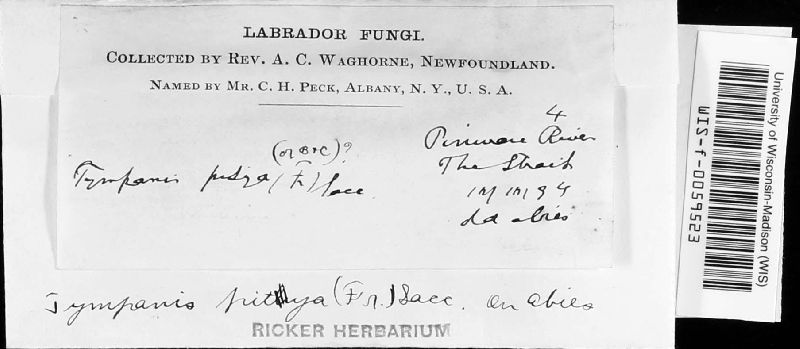 LABRADOR FUNGI.
COLLECTED BY REV. A. C. WAGHORNE, NEWFOUNDLAND.
NAMED BY MR. C. H. PECK, ALBANY, N. Y., U. S. A.
4
Pinware River
The Strait
abies
(or B+C)?
Tympanis pitya (Fr) Sacc
Tympanis pithya (Fr.) Sacc. On abies
RICKER HERBARIUM
University of Wisconsin-Madison (WIS)
WIS-f-0059523